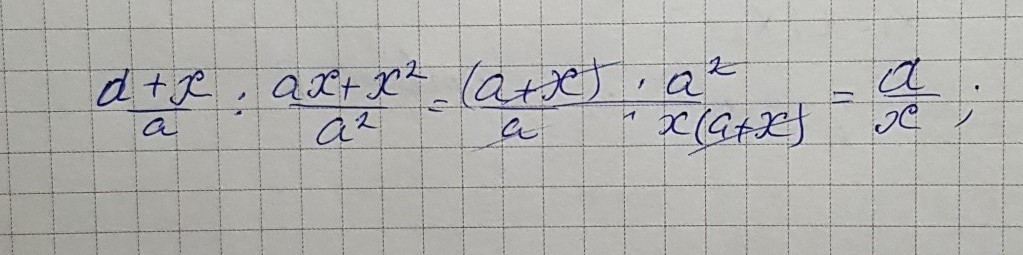 \frac{a+x}{a} : \frac{ax+x^2}{a^2} = \frac{(a+x) \cdot a^2}{a \cdot x(a+x)} = \frac{a}{x};